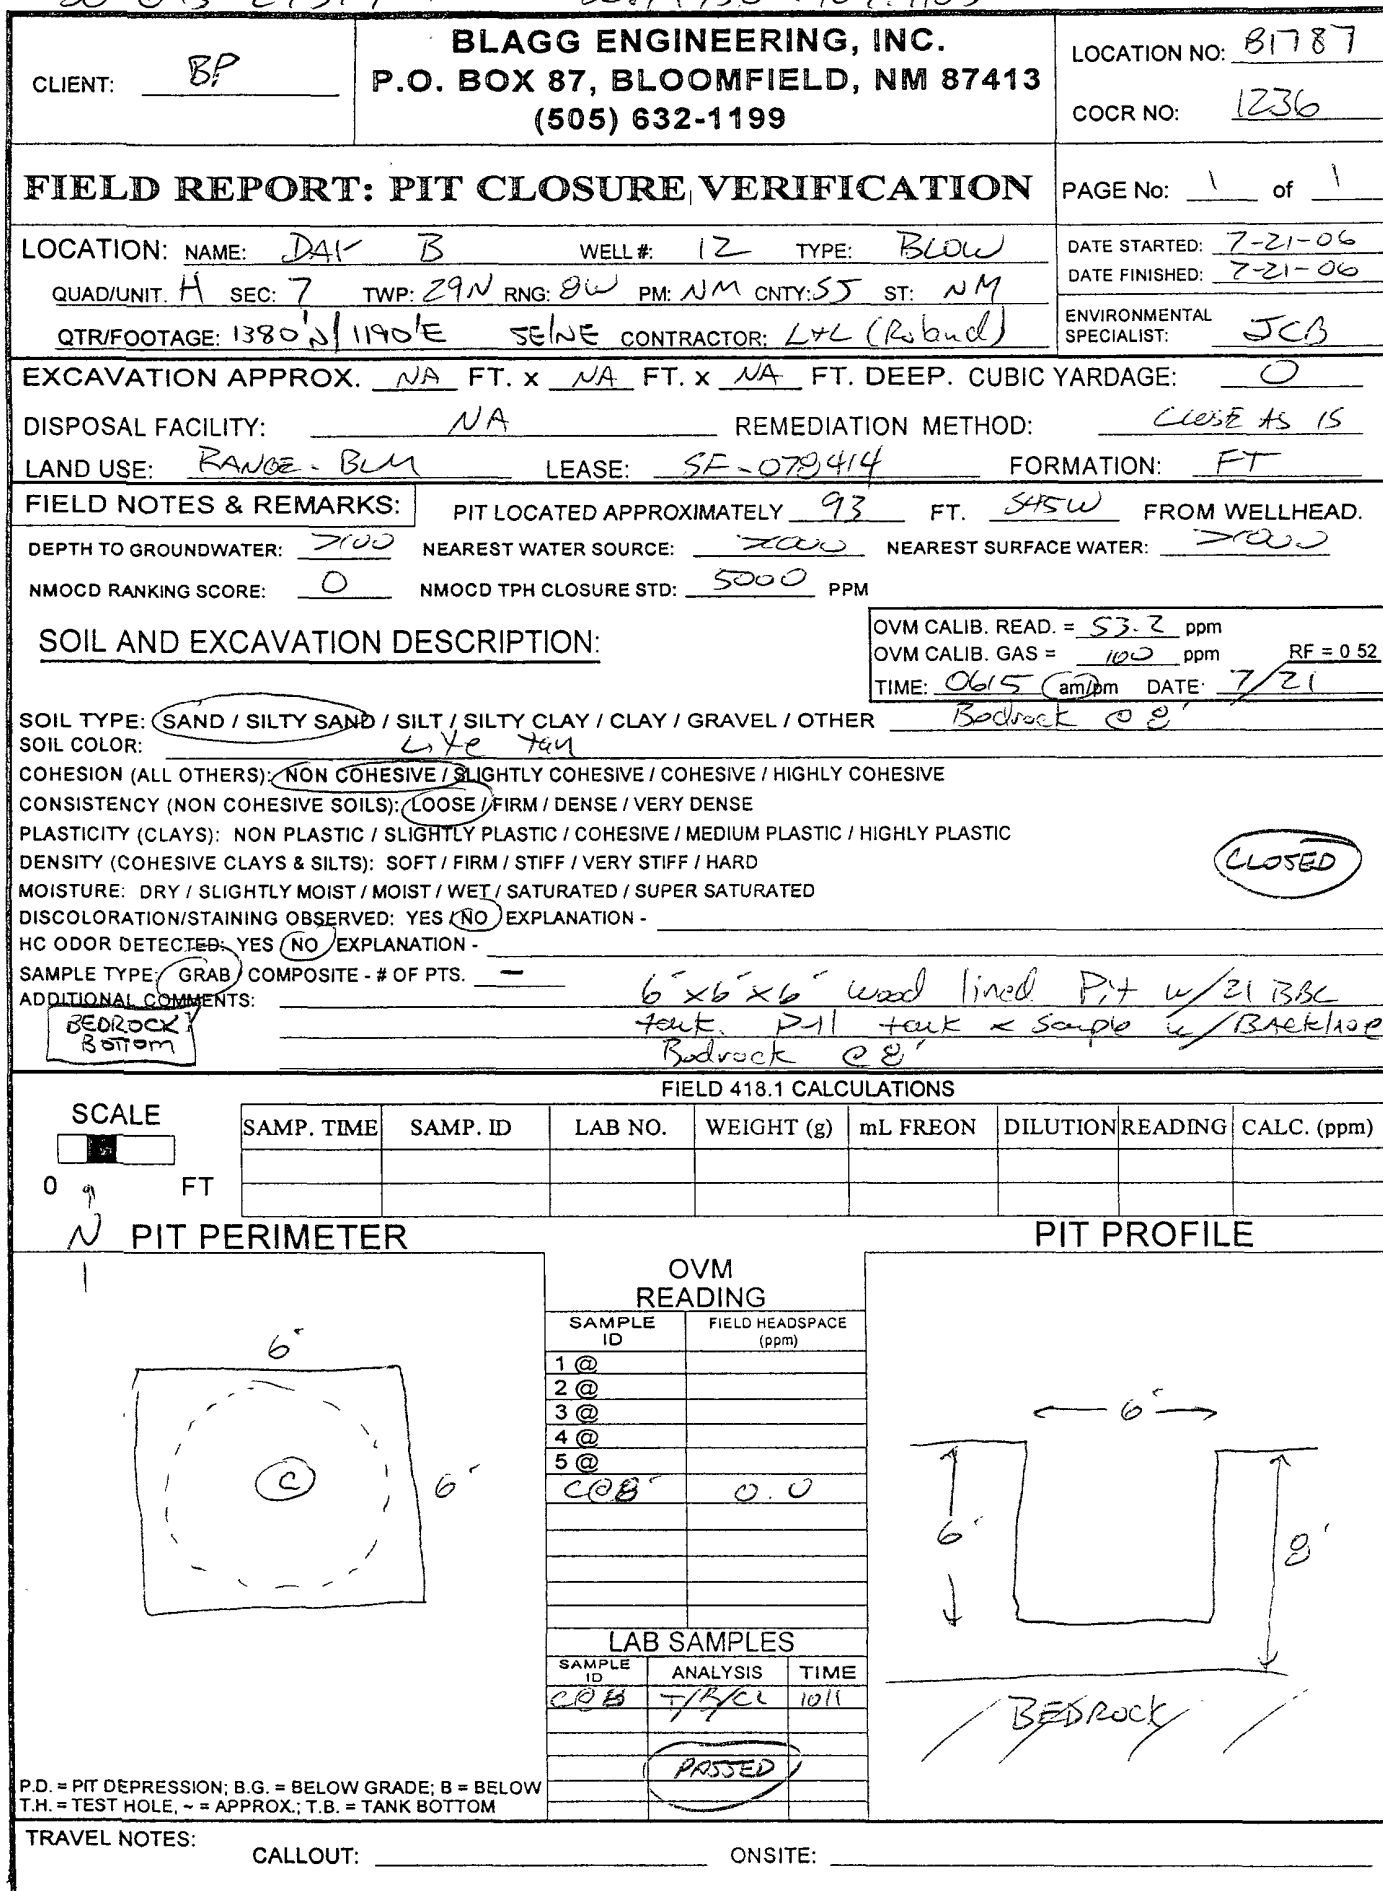 BLAGG ENGINEERING, INC.
P.O. BOX 87, BLOOMFIELD, NM 87413
(505) 632-1199
CLIENT: BP
LOCATION NO: B1787
COCR NO: 1236
FIELD REPORT: PIT CLOSURE VERIFICATION
PAGE No: 1 of 1
LOCATION: NAME: DAY B WELL #: 12 TYPE: BLOW
QUAD/UNIT. H SEC: 7 TWP: 29N RNG: 8W PM: NM CNTY: SJ ST: NM
QTR/FOOTAGE: 1380'N/1190'E SE/NE CONTRACTOR: L+L (Roland)
DATE STARTED: 7-21-06
DATE FINISHED: 7-21-06
ENVIRONMENTAL
SPECIALIST: JCB
EXCAVATION APPROX. NA FT. x NA FT. x NA FT. DEEP. CUBIC YARDAGE: 0
DISPOSAL FACILITY: NA REMEDIATION METHOD: CLOSE AS IS
LAND USE: RANGE - BLM LEASE: SF-078414 FORMATION: FT
FIELD NOTES & REMARKS: PIT LOCATED APPROXIMATELY 93 FT. S45W FROM WELLHEAD.
DEPTH TO GROUNDWATER: >100 NEAREST WATER SOURCE: >1000 NEAREST SURFACE WATER: >1000
NMOCD RANKING SCORE: 0 NMOCD TPH CLOSURE STD: 5000 PPM
SOIL AND EXCAVATION DESCRIPTION:
OVM CALIB. READ. = 53.2 ppm
OVM CALIB. GAS = 100 ppm RF = 0 52
TIME: 0615 am/pm DATE: 7/21
SOIL TYPE: SAND / SILTY SAND / SILT / SILTY CLAY / CLAY / GRAVEL / OTHER Bedrock @ 8'
SOIL COLOR: Lite tan
COHESION (ALL OTHERS): NON COHESIVE / SLIGHTLY COHESIVE / COHESIVE / HIGHLY COHESIVE
CONSISTENCY (NON COHESIVE SOILS): LOOSE / FIRM / DENSE / VERY DENSE
PLASTICITY (CLAYS): NON PLASTIC / SLIGHTLY PLASTIC / COHESIVE / MEDIUM PLASTIC / HIGHLY PLASTIC
DENSITY (COHESIVE CLAYS & SILTS): SOFT / FIRM / STIFF / VERY STIFF / HARD
CLOSED
MOISTURE: DRY / SLIGHTLY MOIST / MOIST / WET / SATURATED / SUPER SATURATED
DISCOLORATION/STAINING OBSERVED: YES / NO EXPLANATION -
HC ODOR DETECTED: YES / NO EXPLANATION -
SAMPLE TYPE: GRAB / COMPOSITE - # OF PTS. -
ADDITIONAL COMMENTS: 6'x6'x6' wood lined Pit w/21 BBL
tank. Pull tank & Sample w/BACKHOE
Bedrock @ 8'
BEDROCK
BOTTOM
FIELD 418.1 CALCULATIONS
SCALE
0 FT
SAMP. TIME SAMP. ID LAB NO. WEIGHT (g) mL FREON DILUTION READING CALC. (ppm)
N
PIT PERIMETER
PIT PROFILE
OVM
READING
SAMPLE ID FIELD HEADSPACE (ppm)
1 @
2 @
3 @
4 @
5 @
C@8' 0.0
6'
C
6'
6'
6'
8'
BEDROCK
LAB SAMPLES
SAMPLE ID ANALYSIS TIME
C@8 T/B/CL 1011
PASSED
P.D. = PIT DEPRESSION; B.G. = BELOW GRADE; B = BELOW
T.H. = TEST HOLE, ~ = APPROX.; T.B. = TANK BOTTOM
TRAVEL NOTES:
CALLOUT: ONSITE: